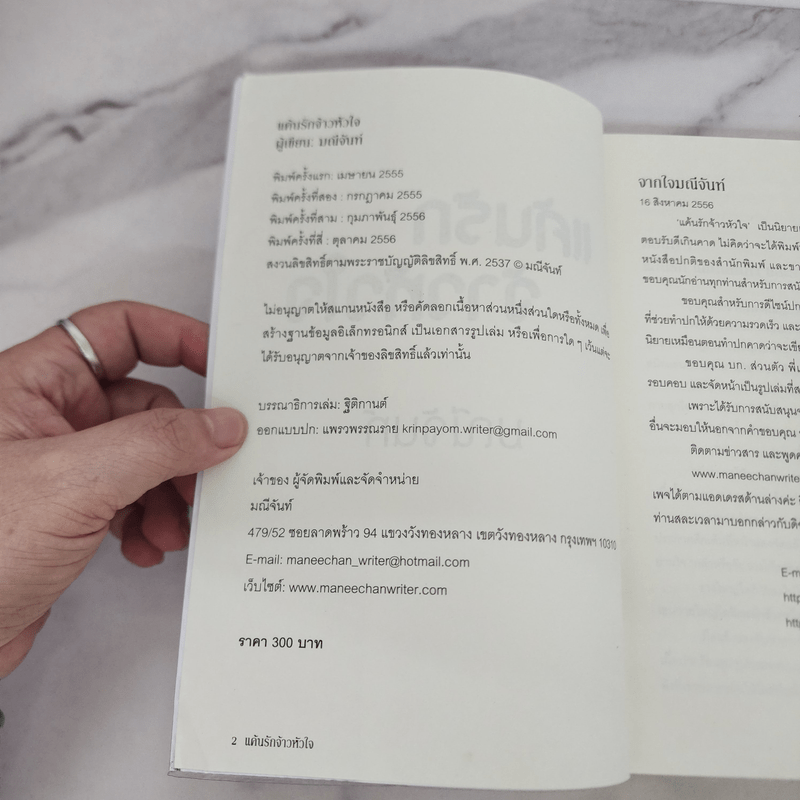 แค้นรักจ้าวหัวใจ
ผู้เขียน: มณีจันท์
พิมพ์ครั้งแรก: เมษายน 2555
พิมพ์ครั้งที่สอง : กรกฎาคม 2555
พิมพ์ครั้งที่สาม : กุมภาพันธุ์ 2556
พิมพ์ครั้งที่สี่ : ตุลาคม 2556
สงวนลิขสิทธิ์ตามพระราชบัญญัติลิขสิทธิ์ พ.ศ. 2537 © มณีจันท์
ไม่อนุญาตให้สแกนหนังสือ หรือคัดลอกเนื้อหาส่วนหนึ่งส่วนใดหรือทั้งหมด เพื่อ
สร้างฐานข้อมูลอิเล็กทรอนิกส์ เป็นเอกสารรูปเล่ม หรือเพื่อการใด ๆ เว้นแต่จะ
ได้รับอนุญาตจากเจ้าของลิขสิทธิ์แล้วเท่านั้น
บรรณาธิการเล่ม: ฐิติกานต์
ออกแบบปก: แพรวพรรณราย krinpayom.writer@gmail.com
เจ้าของ ผู้จัดพิมพ์และจัดจำหน่าย
มณีจันท์
479/52 ซอยลาดพร้าว 94 แขวงวังทองหลาง เขตวังทองหลาง กรุงเทพฯ 10310
E-mail: maneechan_writer@hotmail.com
เว็บไซต์: www.maneechanwriter.com
ราคา 300 บาท
2 แค้นรักจ้าวหัวใจ
จากใจมณีจันท์
16 สิงหาคม 2556
'แค้นรักจ้าวหัวใจ' เป็นนิยาย
ตอบรับดีเกินคาด ไม่คิดว่าจะได้พิมพ์
หนังสือปกติของสำนักพิมพ์ และขา
ขอบคุณนักอ่านทุกท่านสำหรับการสนั
ขอบคุณสำหรับการดีไซน์ปก
ที่ช่วยทำปกให้ด้วยความรวดเร็ว และ
นิยายเหมือนตอนทำปกคาดว่าจะเขีย
ขอบคุณ บก. ส่วนตัว พี่
รอบคอบ และจัดหน้าเป็นรูปเล่มที่ส
เพราะได้รับการสนับสนุน
อื่นจะมอบให้นอกจากคำขอบคุณ
ติดตามข่าวสาร และพูดค
www.maneechanwrite
เพจได้ตามแอดเดรสด้านล่างค่ะ
ท่านสละเวลามาบอกกล่าวกับดิ
E-m
http
htt